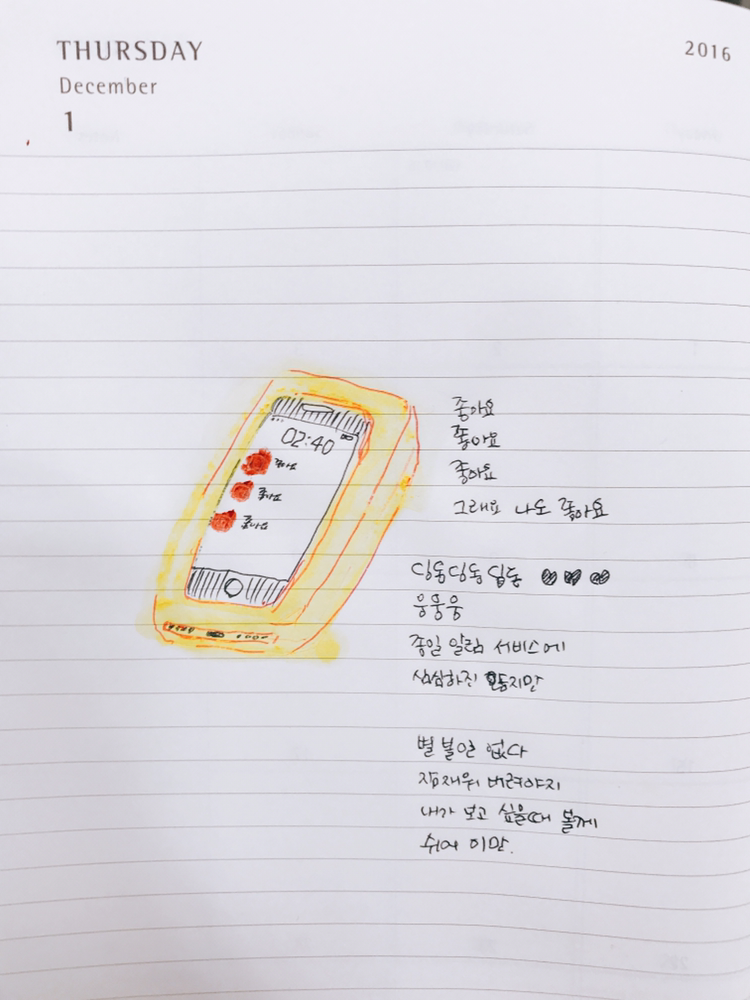 THURSDAY
December
1
2016
02:40
좋아요
좋아요
좋아요
좋아요
좋아요
좋아요
그래요 나도 좋아요
딩동딩동딩동
웅웅웅
종일 알림 서비스에
심심하진 않지만
별 볼일 없다
잠재워 버려야지
내가 보고 싶을때 볼게
쉬어 이만.